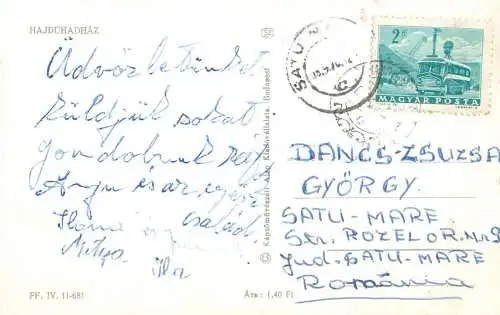 HAJDÚHADHÁZ
Üdvözletünket
küldjük sokat
gondolunk
Anyu és az egész
család
Ilona
FF. IV. 11-681
Ára: 1,40 Ft
Képzőművészeti Alap Kiadóvállalata, Budapest
SATU
2 Ft
MAGYAR POSTA
DANCS-ZSUZSA
GYÖRGY.
SATU-MARE
Str. ROZELOR. Nr. 9
Jud. SATU-MARE
România